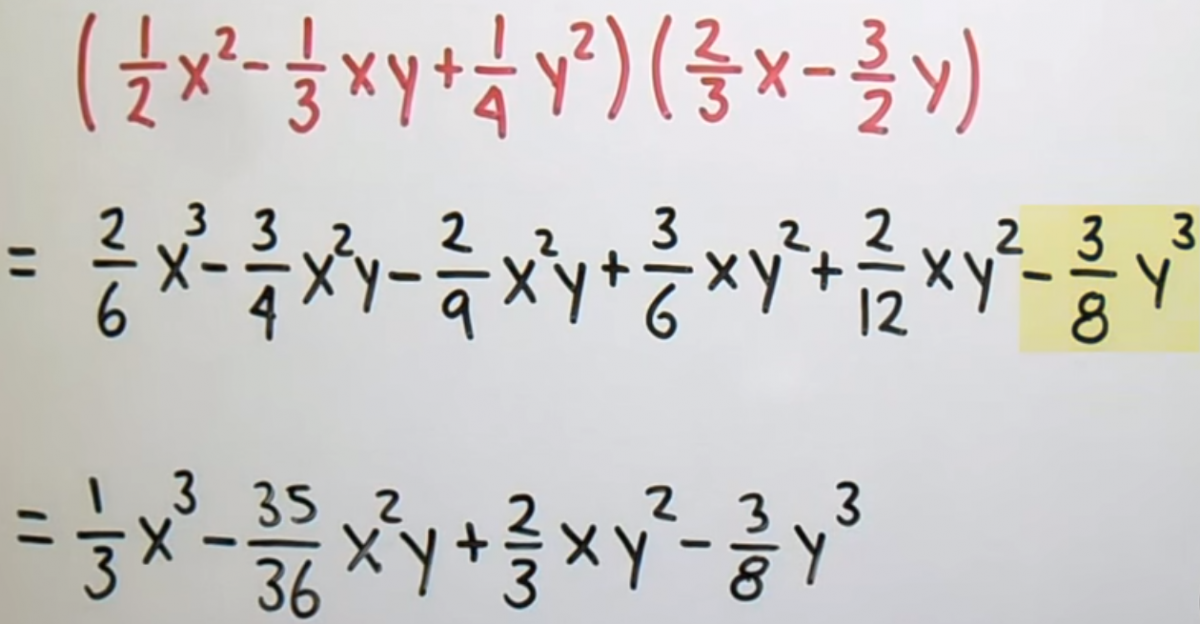 (1/2 x² - 1/3 xy + 1/4 y²)(2/3 x - 3/2 y)
= 2/6 x³ - 3/4 x²y - 2/9 x²y + 3/6 xy² + 2/12 xy² - 3/8 y³
= 1/3 x³ - 35/36 x²y + 2/3 xy² - 3/8 y³